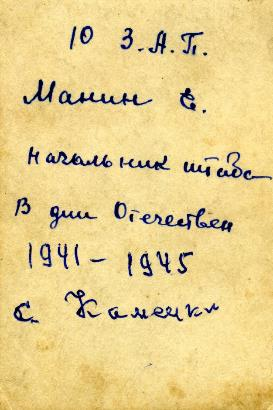 10 З.А.П.
Манин Е.
Начальник штаба
В дни Отечествен
1941 – 1945
с. Каменки